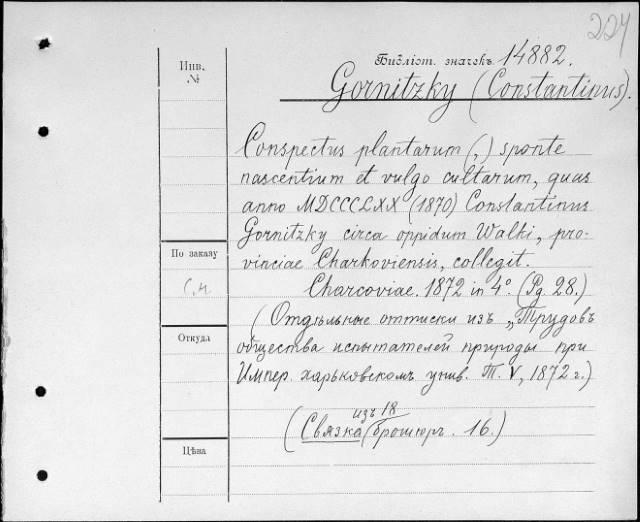 224
Библіот. значекъ 14882.
Инв.
№
Gornitzky (Constantinus).
Conspectus plantarum (,) sponte
nascentium et vulgo cultarum, quas
anno MDCCCLXX (1870) Constantinus
Gornitzky circa oppidum Walki, pro-
vinciae Charkoviensis, collegit.
По заказу
Charcoviae. 1872 in 4° (Pg. 28.)
(Отдѣльные оттиски изъ „Трудовъ
Откуда
общества испытателей природы при
Импер. харьковскомъ унив. Т. V, 1872 г.)
изъ 18
(Связка брошюръ. 16.)
Цѣна